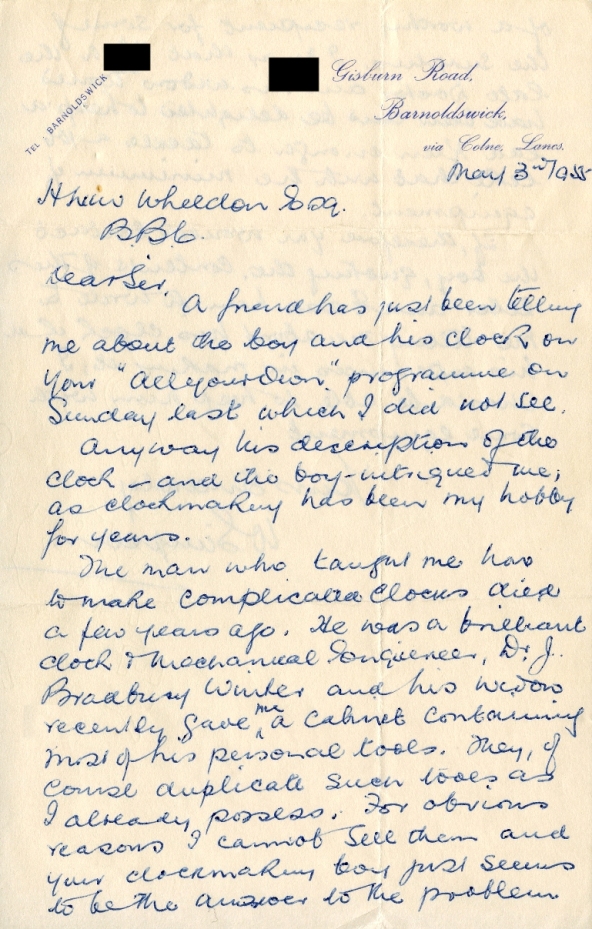 TEL : BARNOLDSWICK
Gisburn Road,
Barnoldswick,
via Colne, Lancs.
May 3rd/1955
Huw Wheldon Esq.
B.B.C.
Dear Sir,
A friend has just been telling
me about the boy and his clock on
your "All your Own" programme on
Sunday last which I did not see.
Anyway his description of the
clock – and the boy – intrigued me,
as clockmaking has been my hobby
for years.
The man who taught me how
to make complicated clocks died
a few years ago. He was a brilliant
clock & Mechanical Engineer, Dr. J.
Bradbury Winter and his widow
recently gave me a cabinet containing
most of his personal tools. They, of
course duplicate such tools as
I already possess. For obvious
reasons I cannot sell them and
your clockmaking boy just seems
to be the answer to the problem.